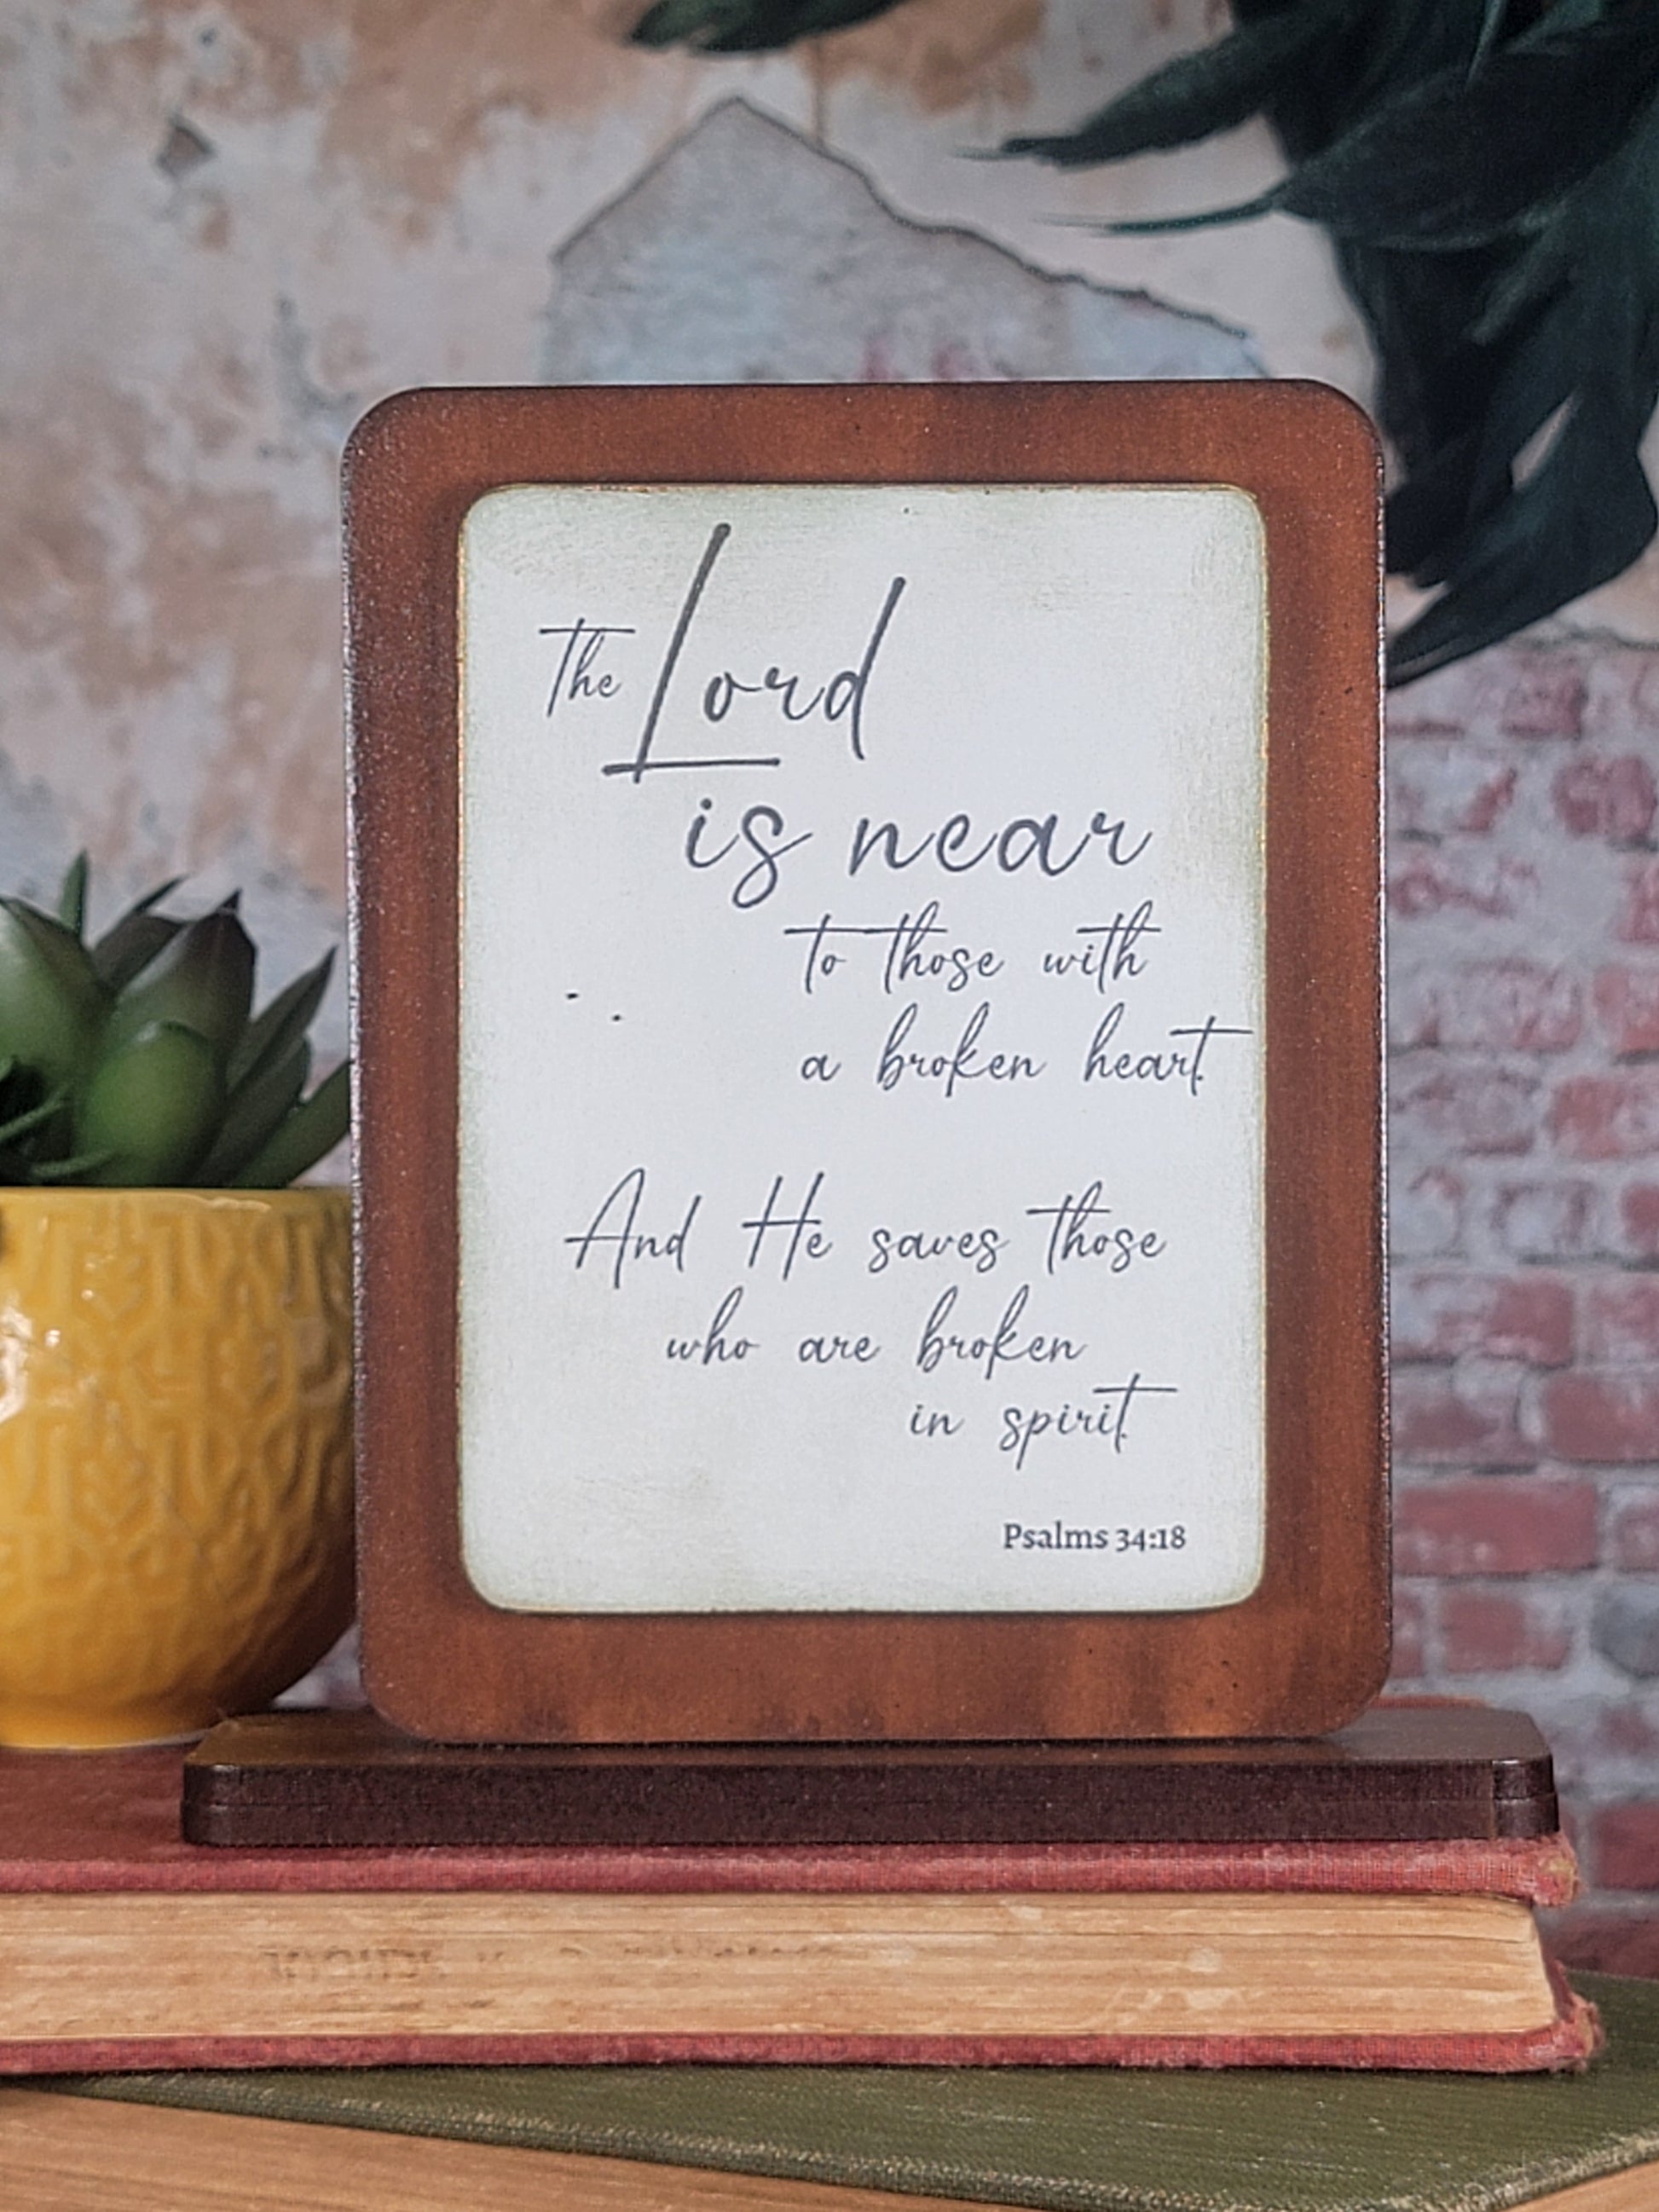 The Lord
is near
to those with
a broken heart.
And He saves those
who are broken
in spirit.
Psalms 34:18